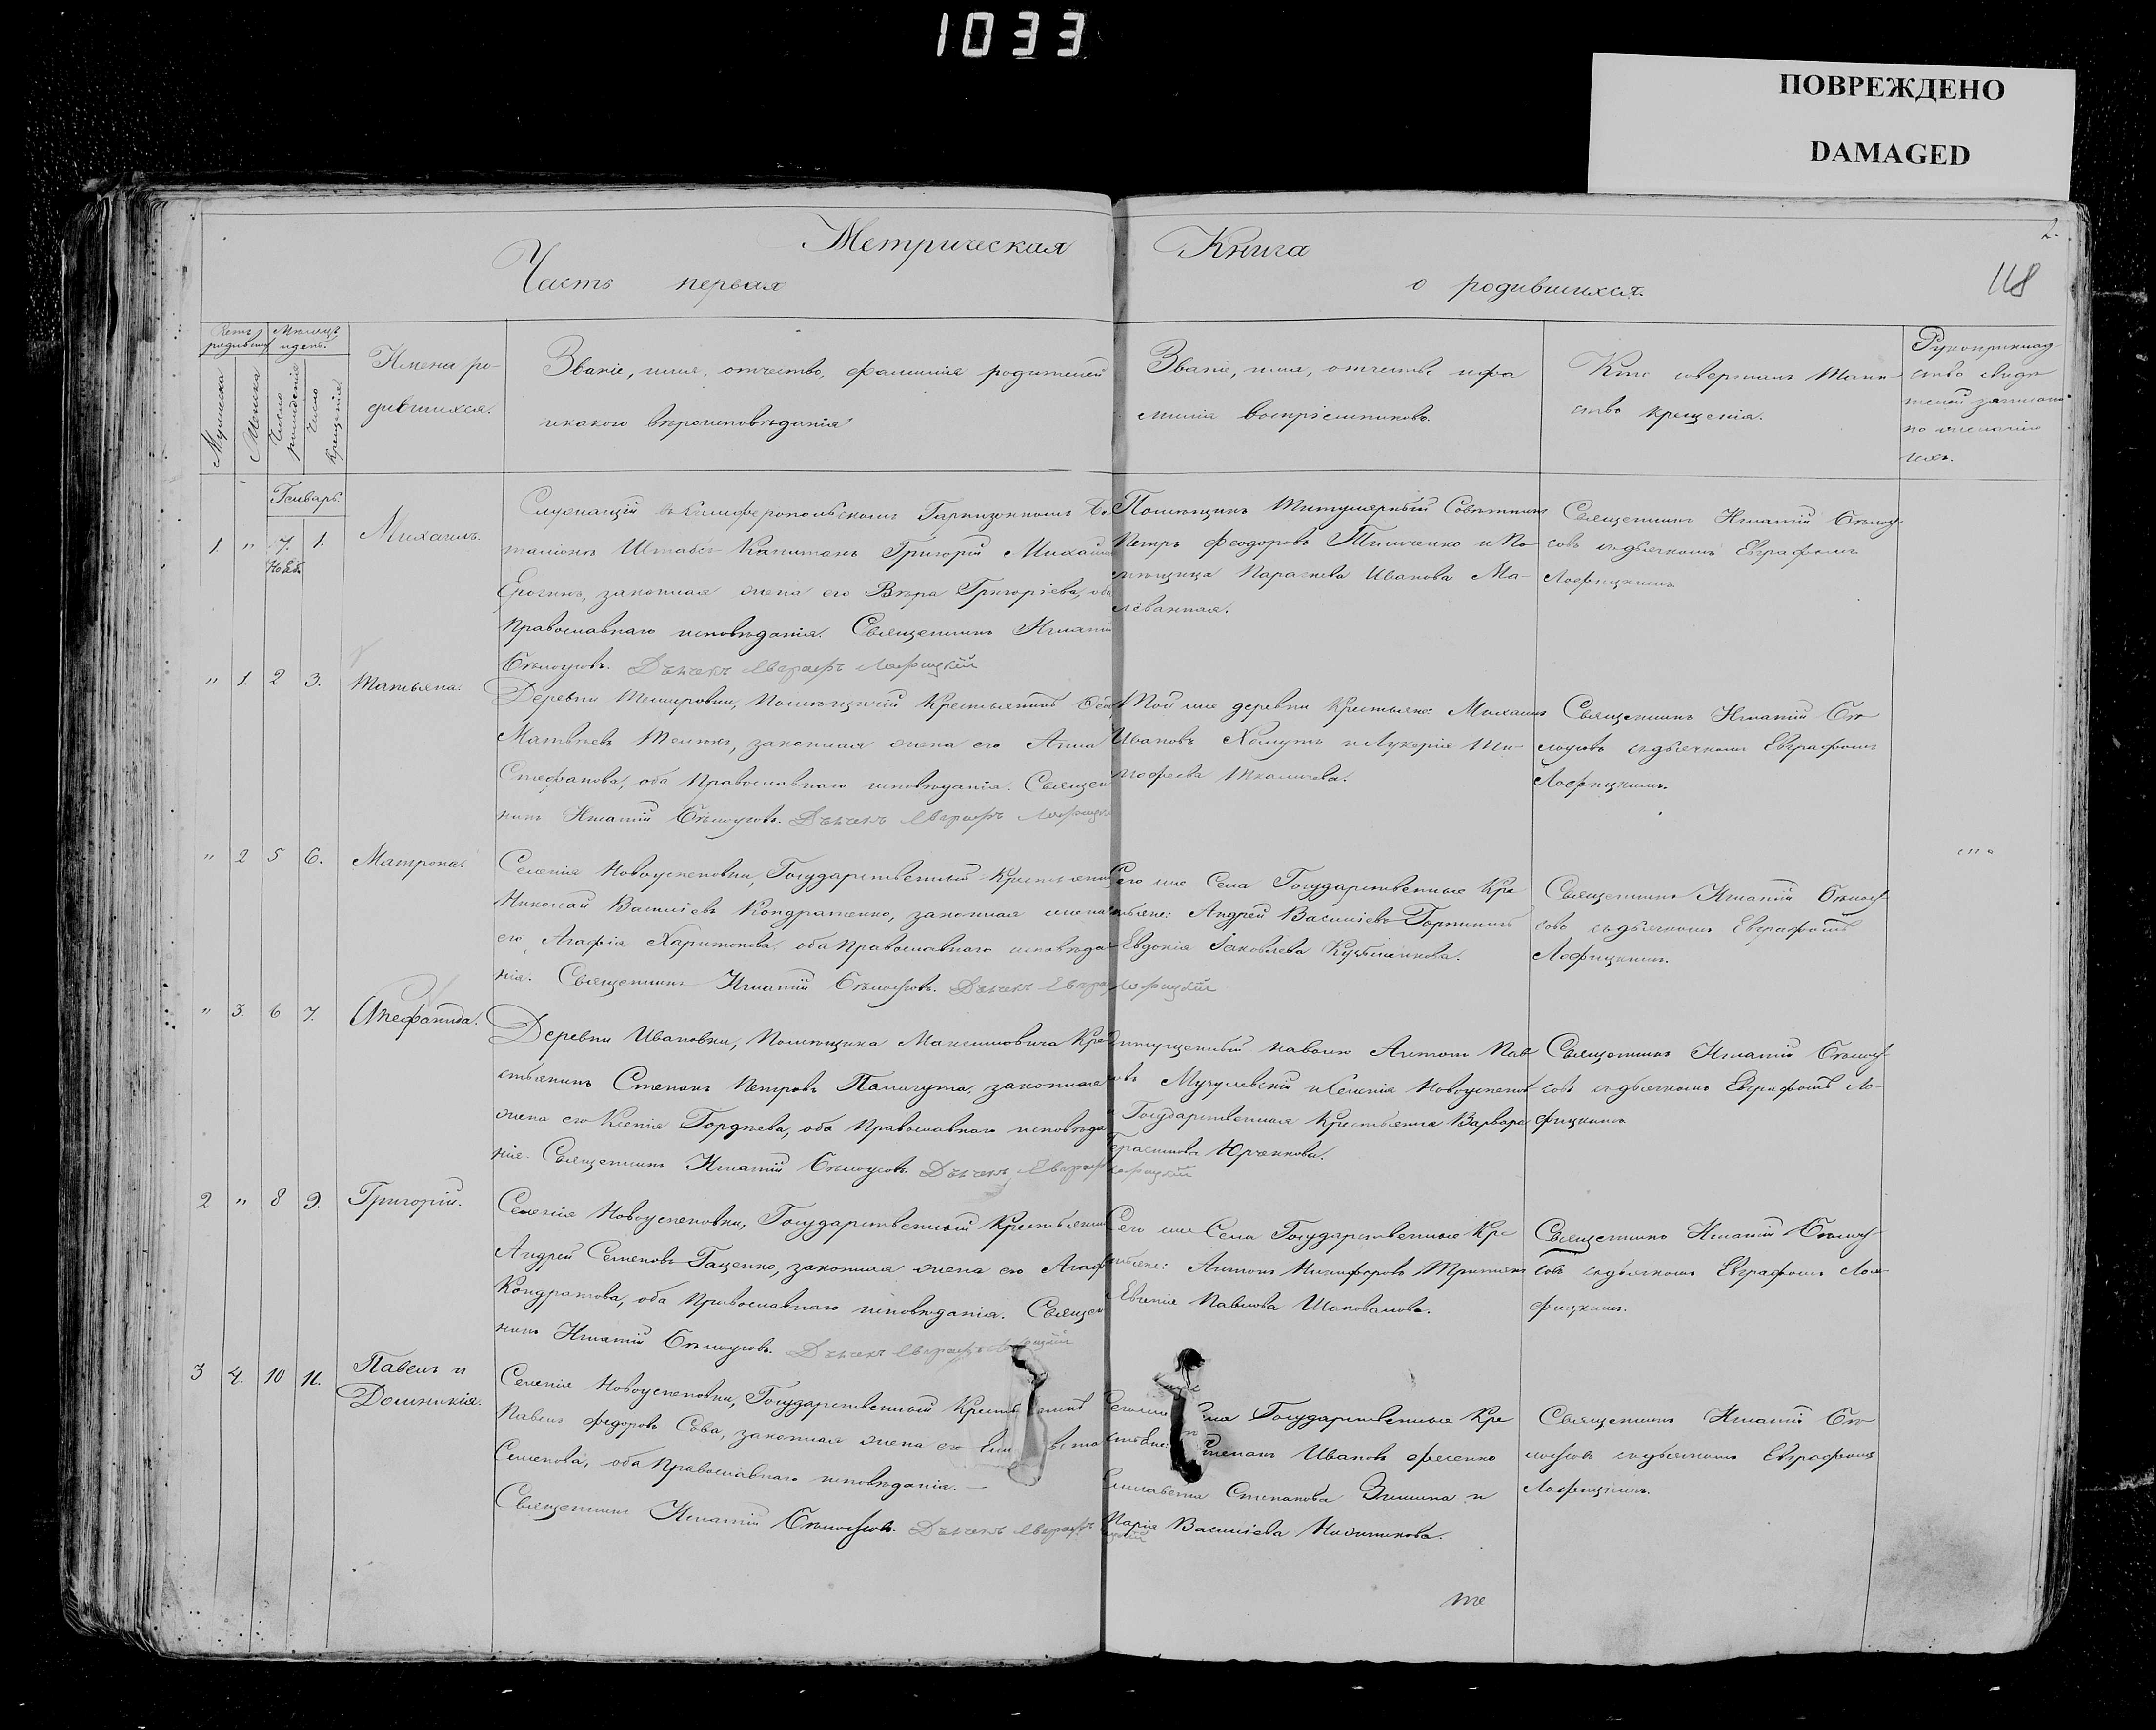 1033
ПОВРЕЖДЕНО
DAMAGED
2.
118
Метрическая Книга
Часть первая о родившихся.
Мужеска
Женска
Число рожденія
Число крещенія
Имена ро-
дившихся.
Званіе, имя, отчество, фамилія родителей
и какого вѣроисповѣданія
Званіе, имя, отчество и фа
милія воспріемниковъ.
Кто совершалъ Таин-
ство крещенія.
Рукоприклад-
ство свидѣ
телей записи
по желанію
Генварь.
1. " 7. 1.
Нояб.
Михаилъ.
Служащій въ Симферопольскомъ Гарнизонномъ Ба
таліонѣ Штабсъ-Капитанъ Григорій Михайловъ
законная жена его Вѣра Григоріева, оба
Православнаго исповѣданія. Священникъ Игнатій
Бѣлоусовъ. Дьячекъ Евграфъ Лофицкій
Помѣщикъ Титулярный Совѣтникъ
Петръ Феодоровъ Тимченко и По
мѣщица Параскева Иванова Ма-
Священникъ Игнатій Бѣлоу-
совъ съ дьячкомъ Евграфомъ
Лофицкимъ
" 1. 2 3.
Татьяна.
Деревни Темировки, Помѣщичій Крестьянинъ
Матвѣевъ законная жена его Анна
Стефанова, оба Православнаго исповѣданія. Священ
никъ Игнатій Бѣлоусовъ. Дьячекъ Евграфъ Лофицкій
Той же деревни Крестьяне: Михаилъ
Ивановъ Хомутъ и Лукерія Ти-
мофеева
Священникъ Игнатій Бѣ
лоусовъ съ дьячкомъ Евграфомъ
Лофицкимъ.
" 2 5 6.
Матрона.
Селенія Новоуспеновки, Государственный Крестьянинъ
Николай Василіевъ Кондратенко, законная жена
его Агафія Харитонова, оба Православнаго исповѣда
нія. Священникъ Игнатій Бѣлоусовъ. Дьячекъ Евграфъ Лофицкій
Сего же Села Государственные Кре
стьяне: Андрей Василіевъ
Евдокія Іаковлева
Священникъ Игнатій Бѣлоу-
совъ съ дьячкомъ Евграфомъ
Лофицкимъ.
" 3. 6 7.
Стефанида.
Деревни Ивановки, Помѣщика Максимовича Кре
стьянинъ Степанъ Петровъ законная
жена его Ксенія Гордѣева, оба Православнаго исповѣда
нія. Священникъ Игнатій Бѣлоусовъ. Дьячекъ Евграфъ Лофицкій
Отпущенный на волю Антонъ Пав
ловъ и Селенія Новоуспенов
Государственная Крестьянка Варвара
Герасимова Юрченкова.
Священникъ Игнатій Бѣлоу-
совъ съ дьячкомъ Евграфомъ Ло-
фицкимъ
2 " 8 9.
Григорій.
Селенія Новоуспеновки, Государственный Крестьянинъ
Андрей Семеновъ Гаценко, законная жена его Агаф
Кондратова, оба Православнаго исповѣданія. Священ
никъ Игнатій Бѣлоусовъ. Дьячекъ Евграфъ Лофицкій
Сего же Села Государственные Кре
стьяне: Антонъ Никифоровъ
Евгенія Павлова Шаповалова.
Священникъ Игнатій Бѣлоу-
совъ съ дьячкомъ Евграфомъ Ло-
фицкимъ.
3 4. 10 11.
Павелъ и
Домникія.
Селенія Новоуспеновки, Государственный Крестьянинъ
Павелъ Федоровъ Сова, законная жена его
Семенова, оба Православнаго исповѣданія. —
Священникъ Игнатій Бѣлоусовъ. Дьячекъ Евграфъ
Сего же Села Государственные Кре
стьяне: Степанъ Ивановъ Фесенко
Елисавета Степанова Зимина и
Марія Василіева
Священникъ Игнатій Бѣ
лоусовъ съ дьячкомъ Евграфомъ
Лофицкимъ.